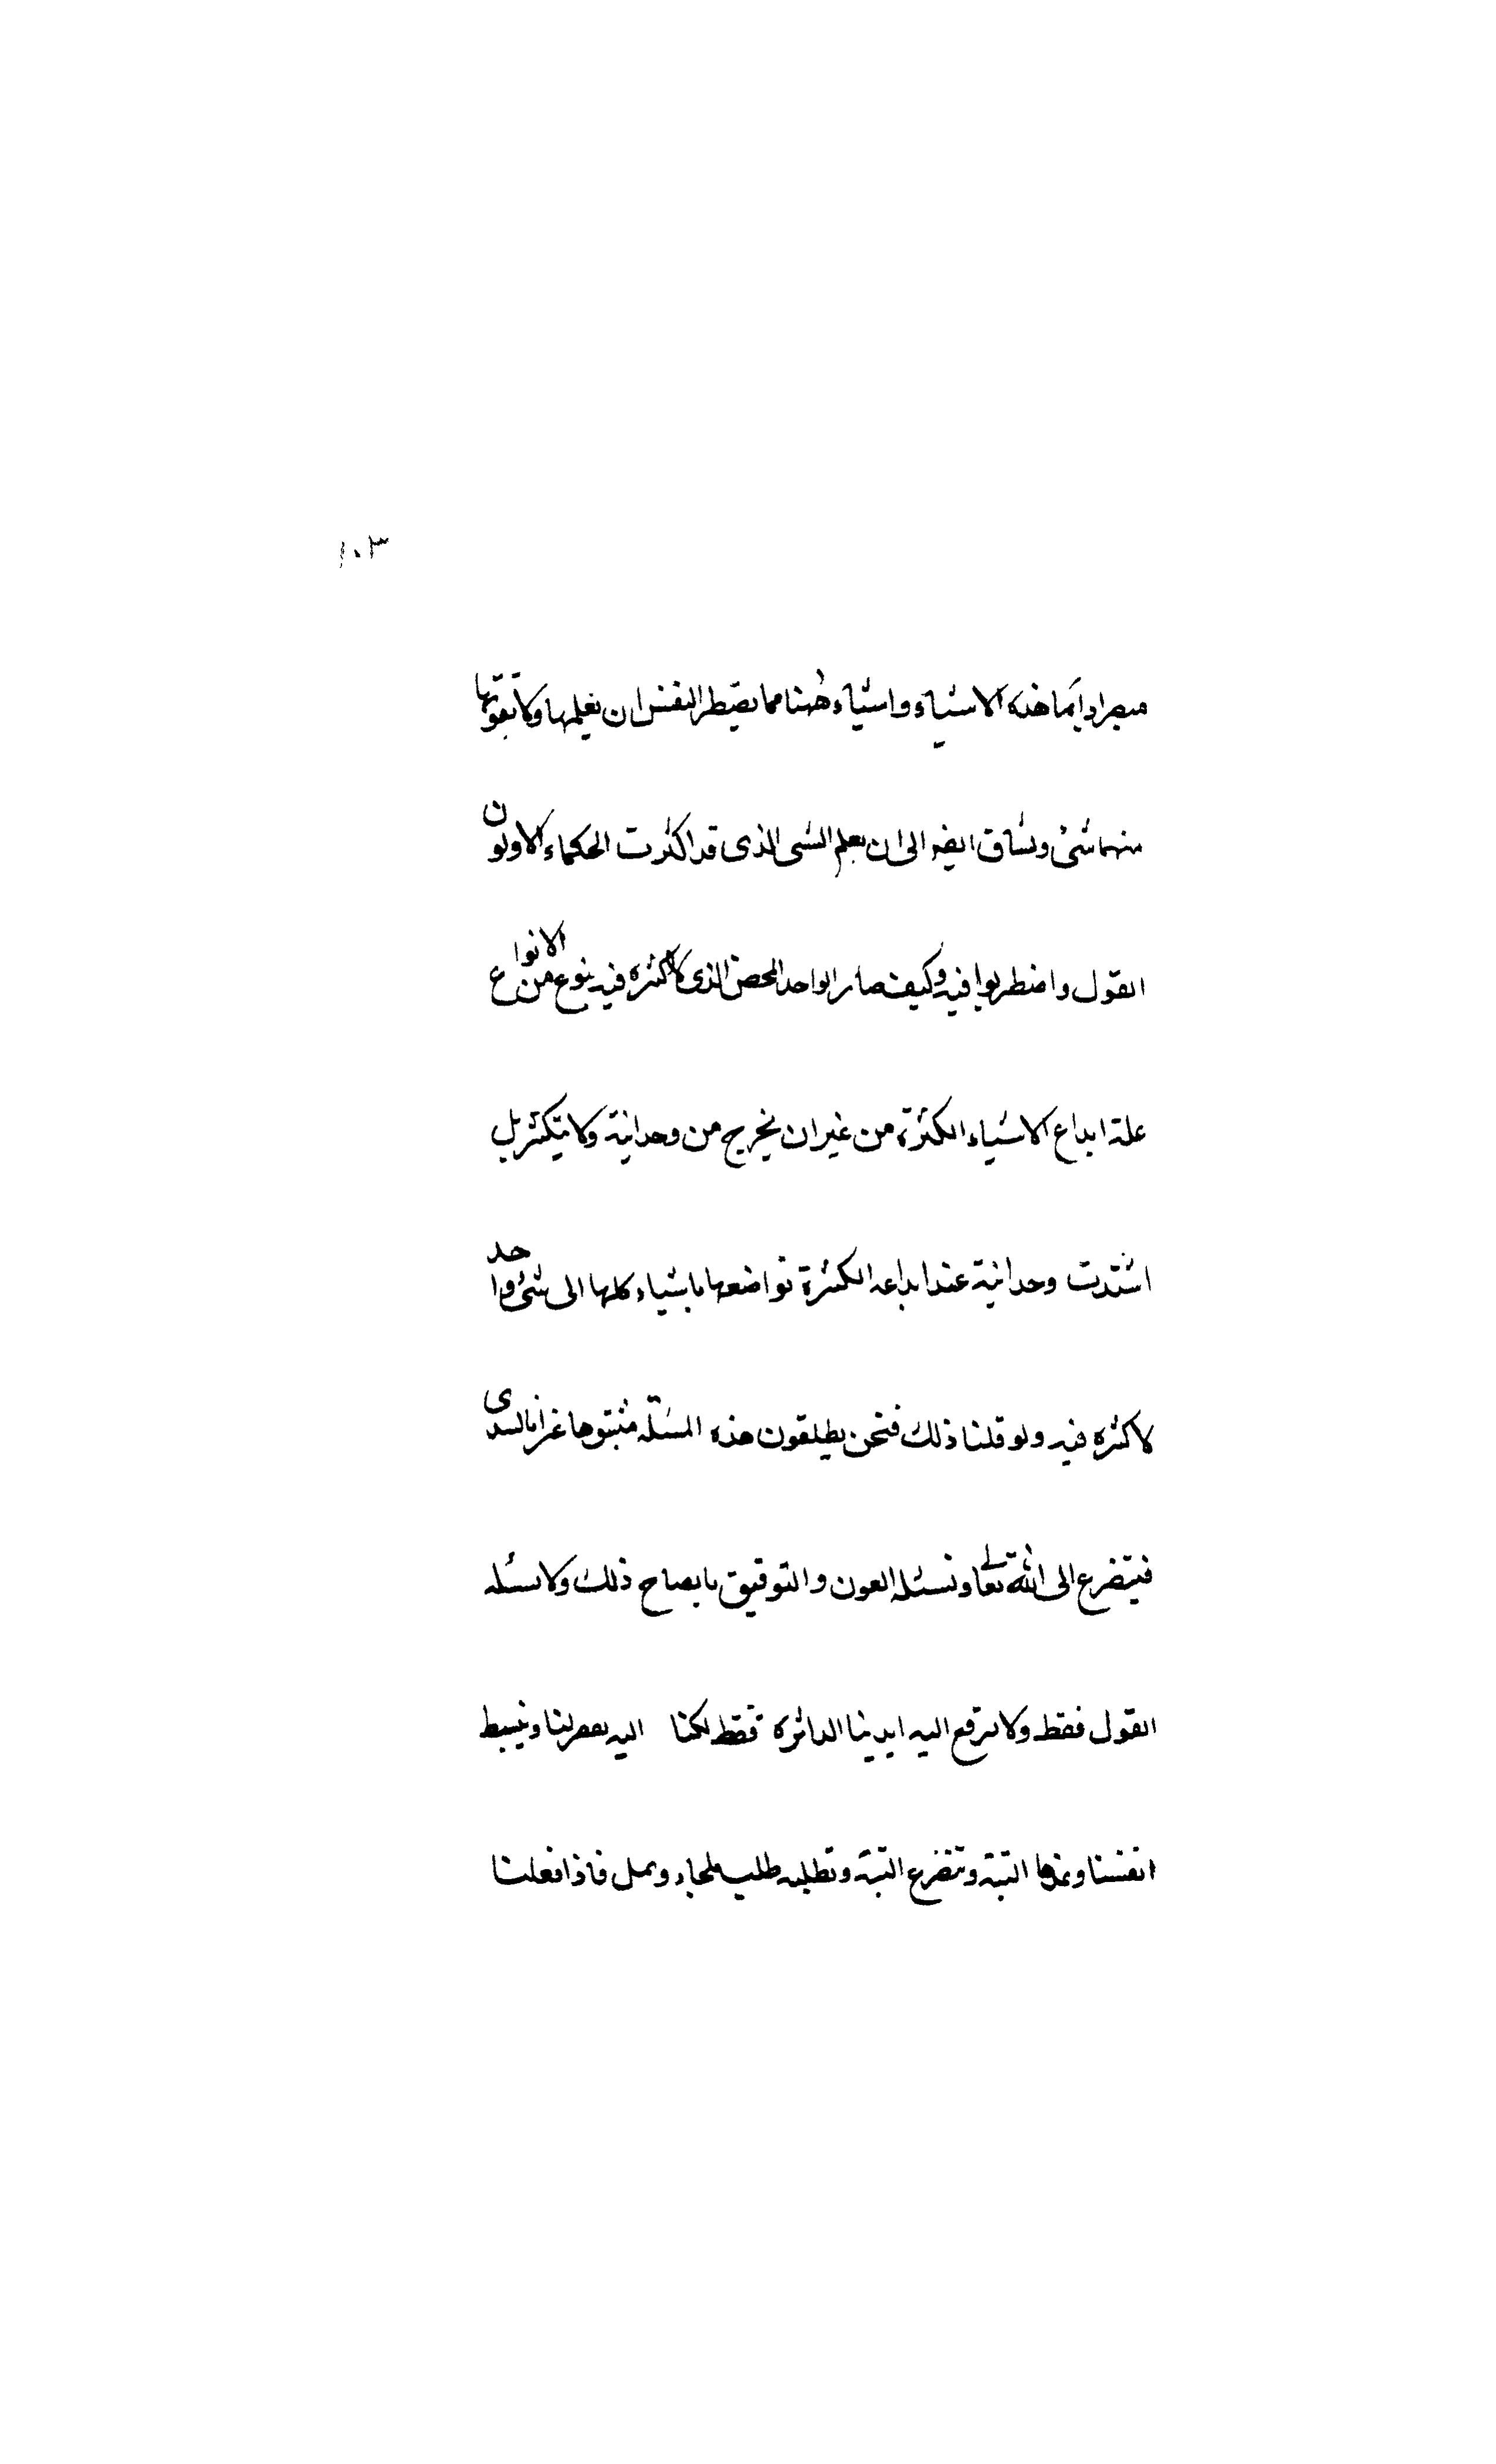 ١٠٣
دايما هذه الاشياء واشياء ههنا مما يضطر النفس ان يعلمها ولا تفوتها
منها شئ ايضه الى ان يعلم الشى الذى قد اكثرت الحكماء الاولون
القول واضطربوا فيه وكيف صار الواحد المحض الذى لا كثره فيه بنوع من الانواع
علة ابداع الاشياء الكثرة من غير ان يخرج من وحدانية ولا يتكثر بل
اشتدت وحدانية عند ابداعه الكثرة اشياء كلها الى شئ واحد
لا كثره فيه ولو قلنا ذلك فنحن يطلقون هذه المسئلة
فيتضرع الى الله تعالى ونسئله العون والتوفيق ذلك ولا نسئله
القول فقط ولا نرفع اليه ايدينا الداثرة فقط لكنا اليه
انفسنا التبة وتتضرع التبة وتطلبه طلب ولا يمل فاذا فعلنا